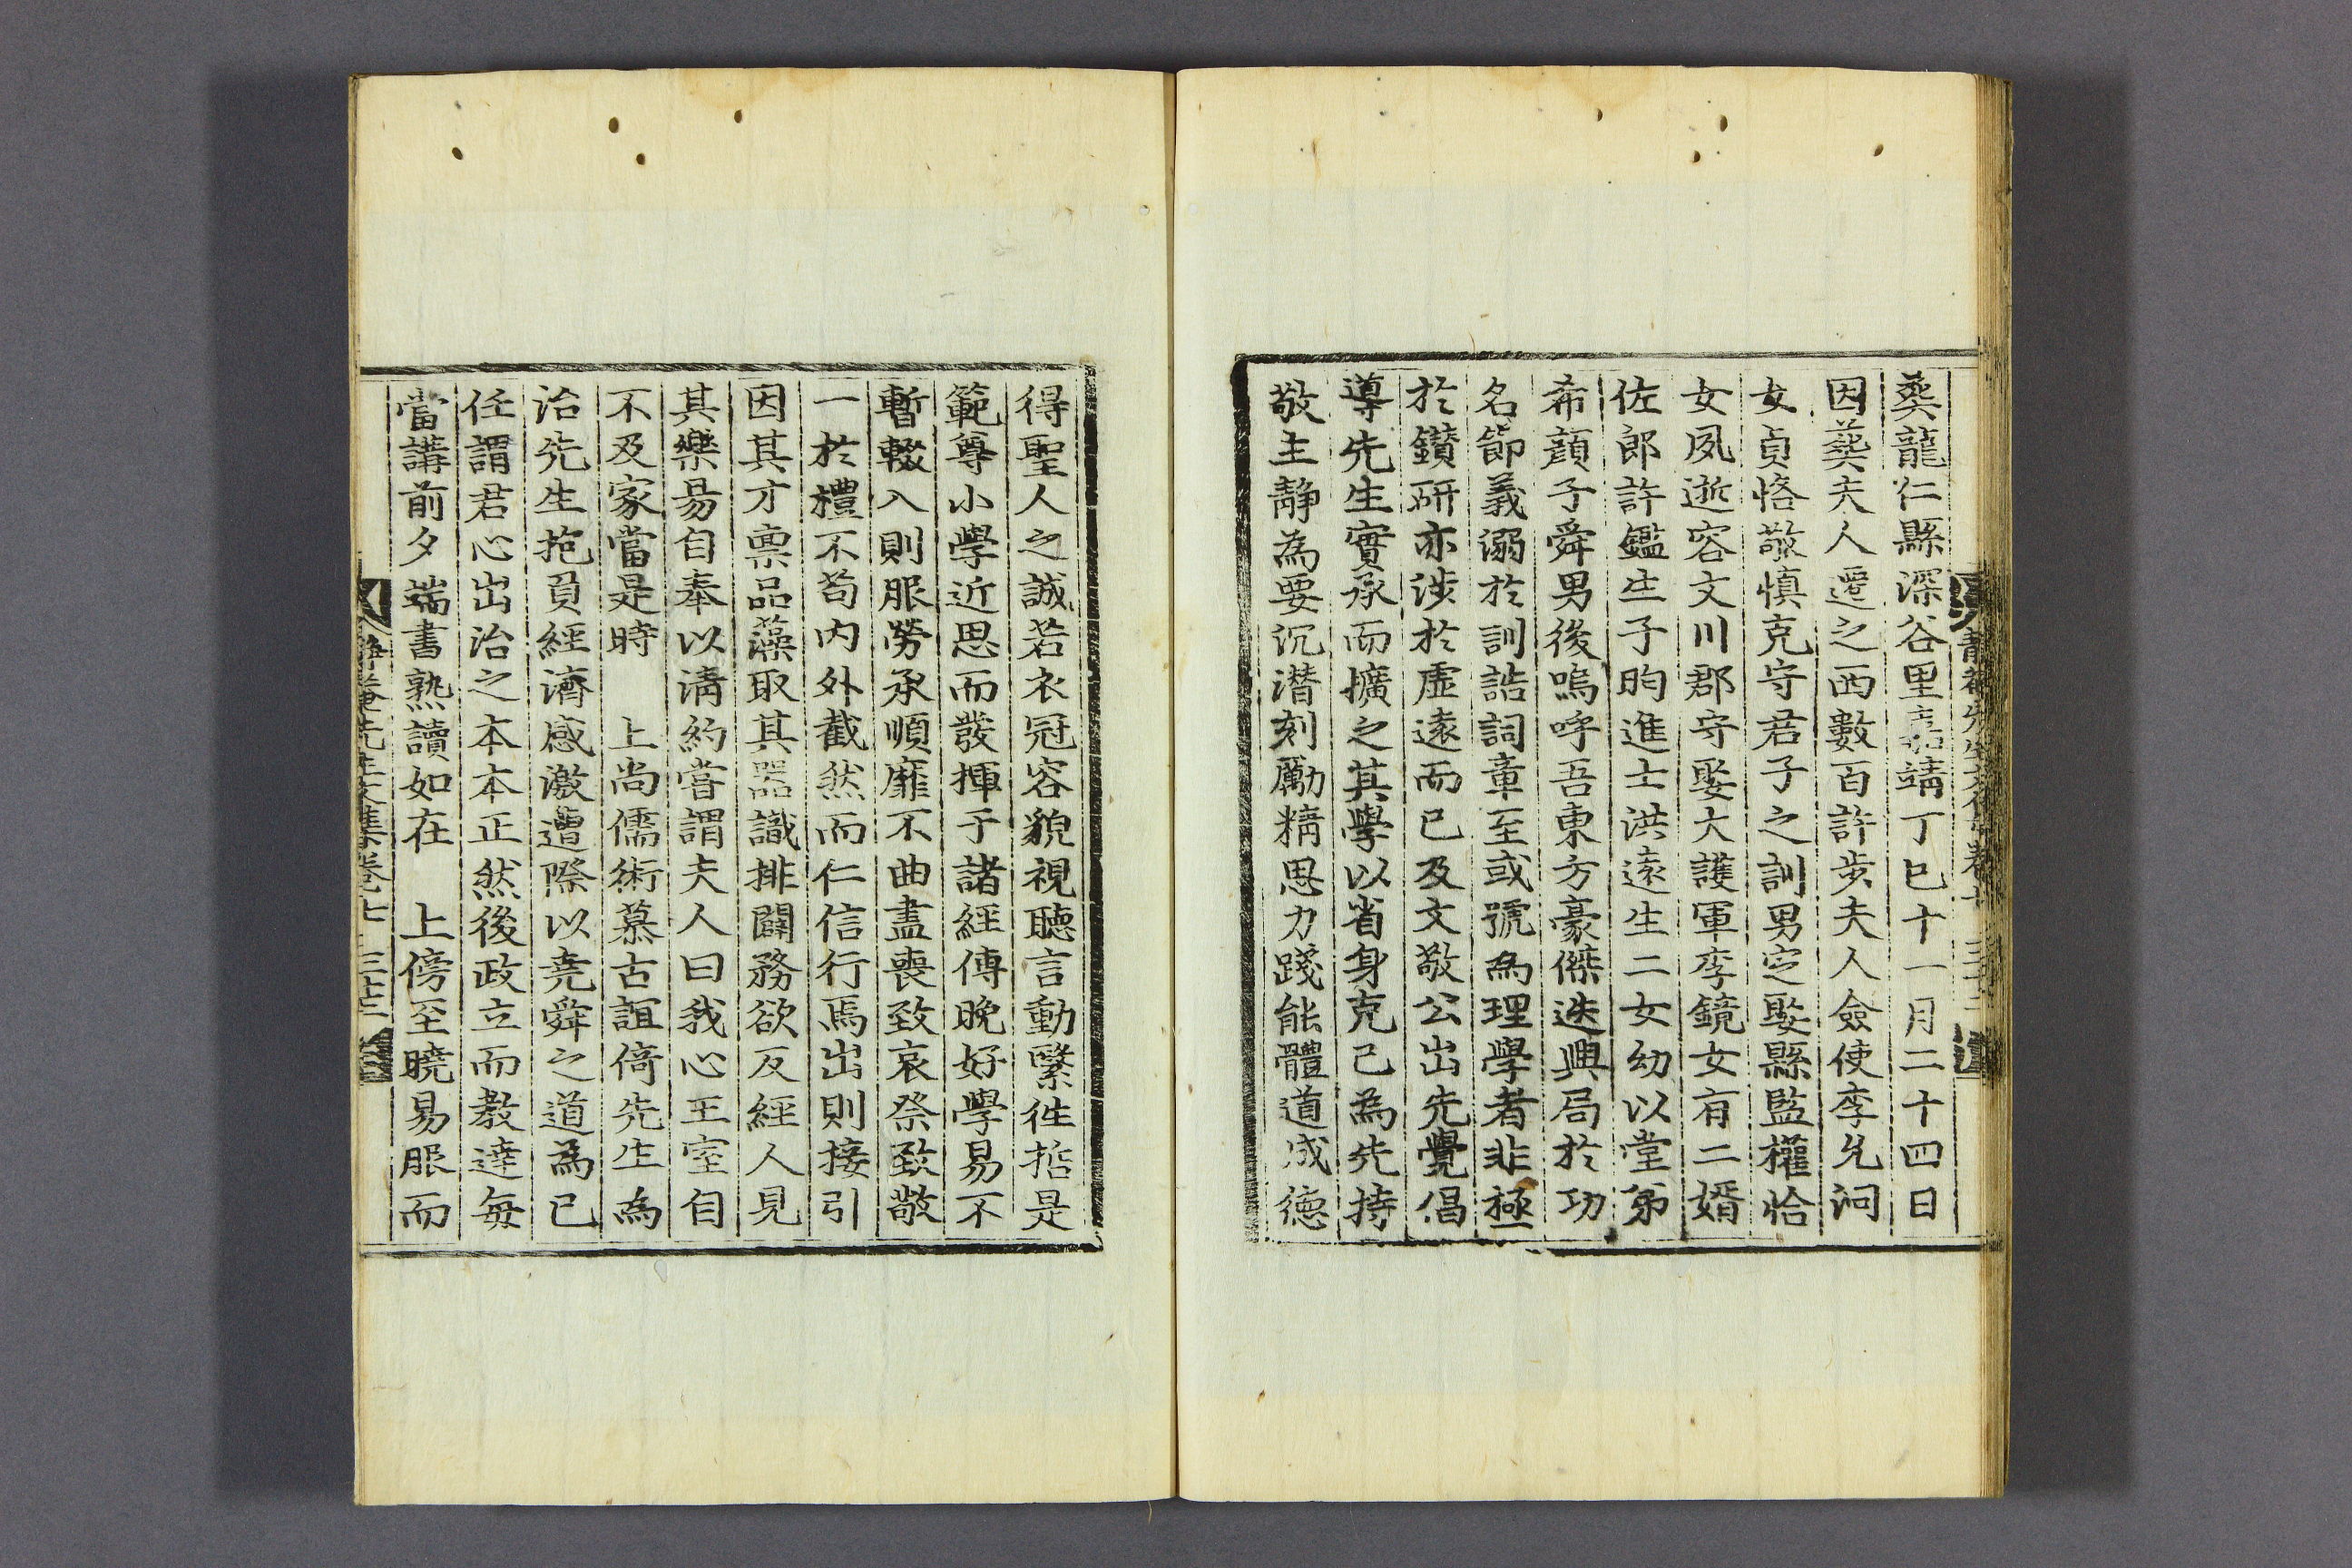 葬龍仁縣深谷里嘉靖丁巳十一月二十四日
因葬夫人遷之西數百許步夫人僉使李允泂
女貞恪敬愼克守君子之訓男定娶縣監權恰
女夙逝容文川郡守娶大護軍李鏡女有二婿
佐郎許鑑生子昀進士洪遠生二女幼以堂弟
希顔子舜男後嗚呼吾東方豪傑迭興局於功
名節義溺於訓誥詞章至或號爲理學者非極
於鑽研亦涉於虛遠而已及文敬公出先覺倡
導先生實承而擴之其學以省身克己爲先持
敬主靜爲要沉潛刻勵精思力踐能體道成德
得聖人之誠若衣冠容貌視聽言動繄徃哲是
範尊小學近思而發揮于諸經傳晩好學易不
暫輟入則服勞承順靡不曲盡喪致哀祭致敬
一於禮不苟内外截然而仁信行焉出則接引
因其才禀品藻取其器識排闢務欲反經人見
其樂易自奉以淸約嘗謂夫人曰我心王室自
不及家當是時　上尚儒術慕古誼倚先生爲
治先生抱負經濟感激遭際以堯舜之道爲己
任謂君心出治之本本正然後政立而教達每
當講前夕端書熟讀如在　上傍至曉易服而
靜菴先生文集卷七　三十三